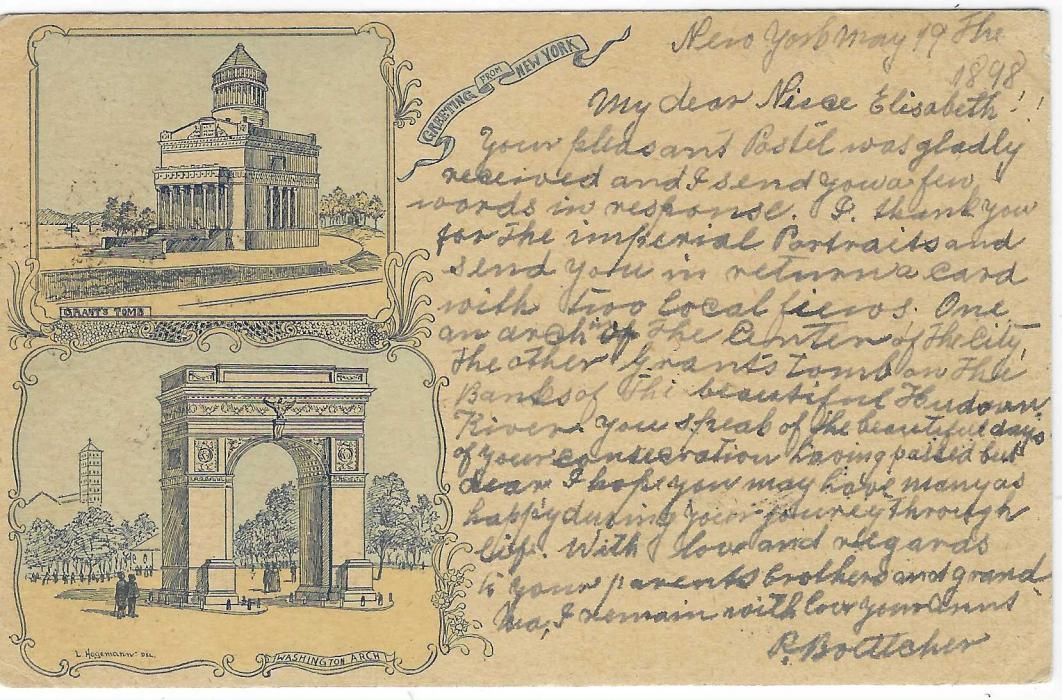 GREETING FROM NEW YORK
New York May 19 the
1898
My dear Niece Elisabeth!!
Your pleasant Postel was gladly
received and I send you a few
words in response. I thank you
for the imperial Portraits and
send you in return a card
with two local fiews. One
an arch of the Center of the City,
the other Grants Tomb on the
Banks of the beautiful Hudson
River. you speak of the beautiful days
of your consecration having passed but
dear I hope you may have many as
happy during your yourey through
life. With love and regards
to your parents brothers and grand
ma, I remain with love your
P. Boettcher
GRANT'S TOMB
L. Hagemann DEL.
WASHINGTON ARCH